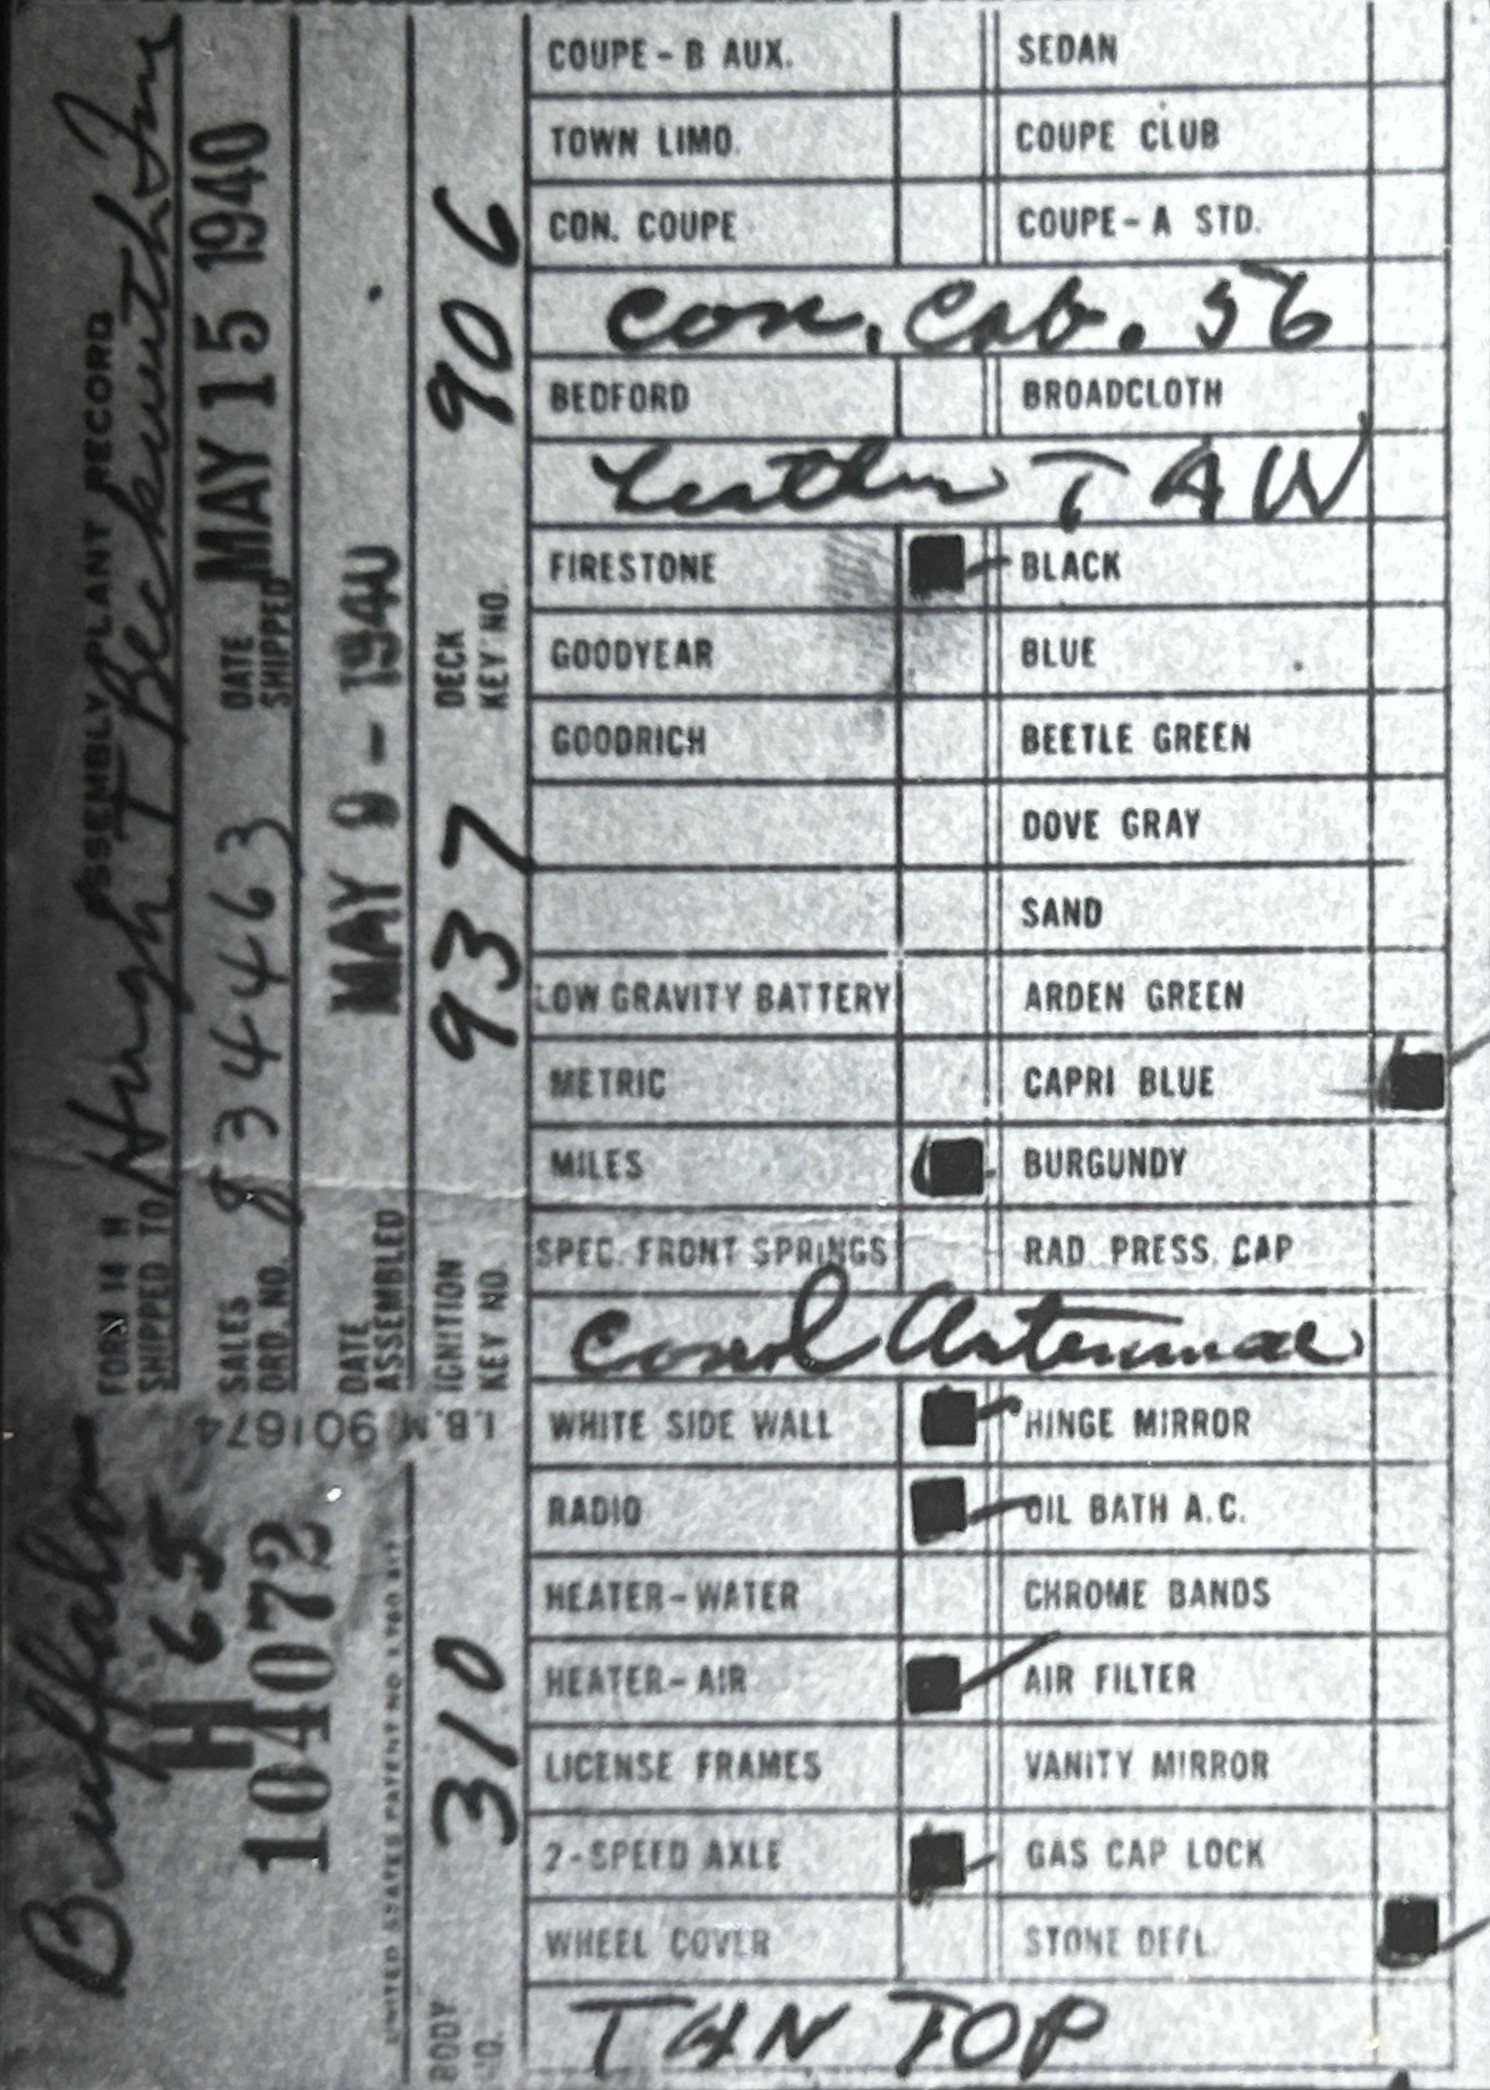 Buffalo
H 65
104072
UNITED STATES PATENT NO 1780 817
BODY NO. 310
I.B.M 901674
FORM 14 H ASSEMBLY PLANT RECORD
SHIPPED TO Hugh T Beckwith Inc
SALES ORD. NO. 834463 DATE SHIPPED MAY 15 1940
DATE ASSEMBLED MAY 9 - 1940
IGNITION KEY NO. 937 DECK KEY NO. 906
COUPE - B AUX. SEDAN
TOWN LIMO. COUPE CLUB
CON. COUPE COUPE - A STD.
Con. Cab. 56
BEDFORD BROADCLOTH
Leather TAN
FIRESTONE BLACK
GOODYEAR BLUE
GOODRICH BEETLE GREEN
DOVE GRAY
SAND
LOW GRAVITY BATTERY ARDEN GREEN
METRIC CAPRI BLUE
MILES BURGUNDY
SPEC. FRONT SPRINGS RAD. PRESS. CAP
Cowl Antennae
WHITE SIDE WALL HINGE MIRROR
RADIO OIL BATH A.C.
HEATER - WATER CHROME BANDS
HEATER - AIR AIR FILTER
LICENSE FRAMES VANITY MIRROR
2 - SPEED AXLE GAS CAP LOCK
WHEEL COVER STONE DEFL.
TAN TOP